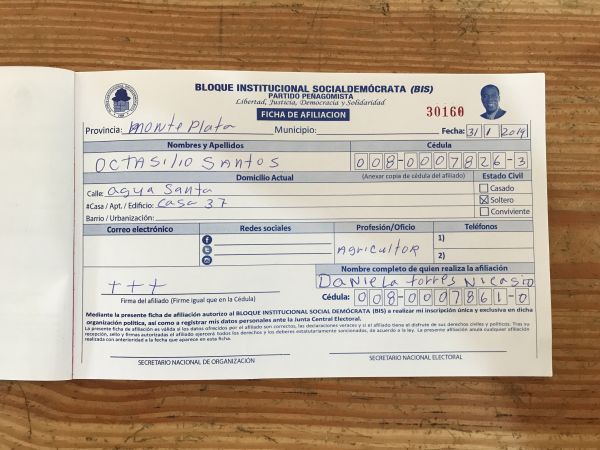 BLOQUE INSTITUCIONAL SOCIALDEMÓCRATA (BIS)
PARTIDO PEÑAGOMISTA
Libertad, Justicia, Democracia y Solidaridad
FICHA DE AFILIACION
30160
Provincia: Monte Plata Municipio: Fecha: 31 1 2019
Nombres y Apellidos Cédula
OCTASILIO SANTOS 008-0007826-3
Domicilio Actual (Anexar copia de cédula del afiliado) Estado Civil
Calle: agua Santa Casado
#Casa / Apt. / Edificio: Casa 37 Soltero
Barrio / Urbanización: Conviviente
Correo electrónico Redes sociales Profesión/Oficio Teléfonos
AgricultOR 1)
2)
Nombre completo de quien realiza la afiliación
+++ Daniela torres Nicasio
Firma del afiliado (Firme igual que en la Cédula) Cédula: 008-0007861-0
Mediante la presente ficha de afiliación autorizo al BLOQUE INSTITUCIONAL SOCIAL DEMÓCRATA (BIS) a realizar mi inscripción única y exclusiva en dicha
organización política, así como a registrar mis datos personales ante la Junta Central Electoral.
La presente ficha de afiliación es válida si los datos ofrecidos por el afiliado son correctos, las declaraciones veraces y si el afiliado tiene el disfrute de sus derechos civiles y políticos. Tras su
recepción, sello y firmas autorizadas el afiliado operará todos los derechos y los deberes estatutariamente sancionados, de acuerdo a la ley. La presente afiliación anula cualquier afiliación
realizada con anterioridad a la fecha que aparece en esta ficha.
SECRETARIO NACIONAL DE ORGANIZACIÓN SECRETARIO NACIONAL ELECTORAL